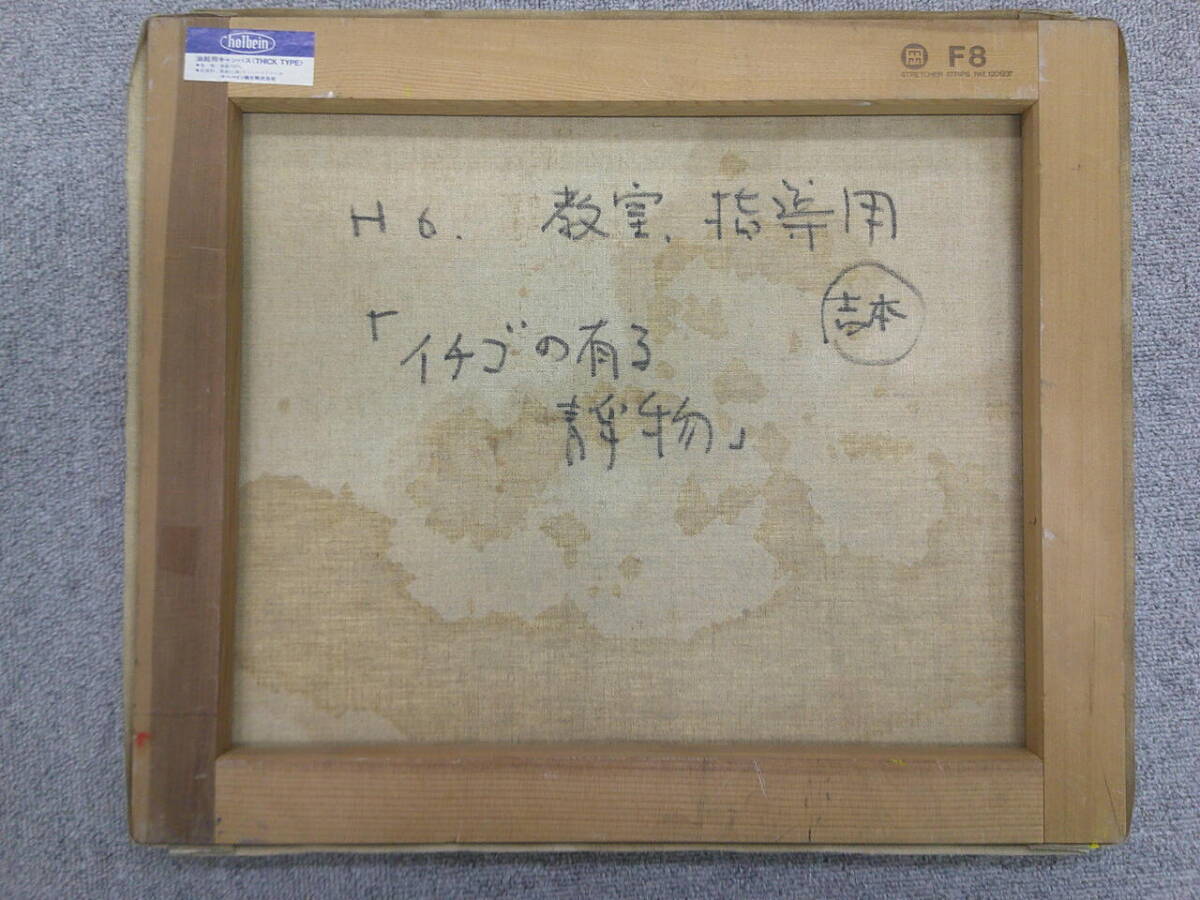 holbein
油絵用キャンバス〈THICK TYPE〉
F8
STRETCHER STRIPS PAT. 1201237
H6. 教室.指導用
吉本
「イチゴの有る
静物」